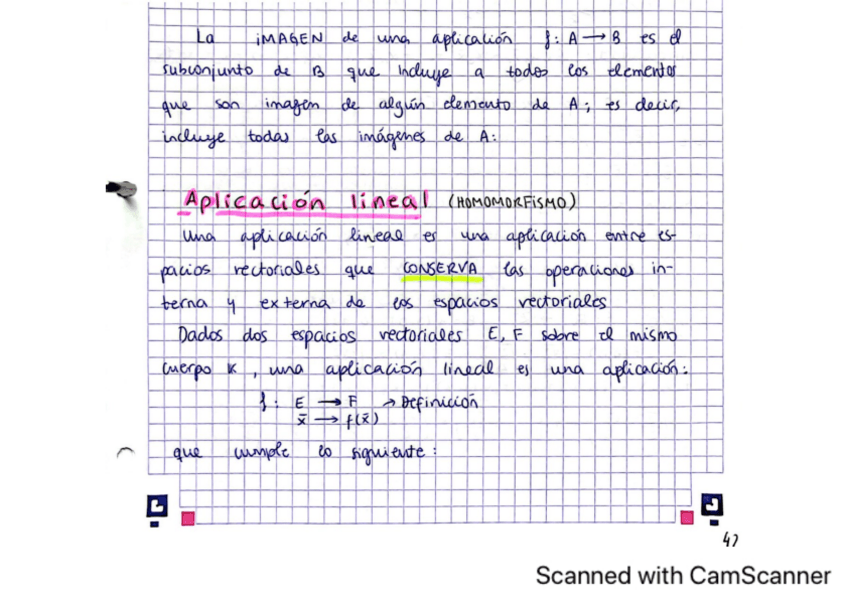 La IMAGEN de una aplicación f: A → B es el
subconjunto de B que incluye a todos los elementos
que son imagen de algún elemento de A; es decir,
incluye todas las imágenes de A:
Aplicación lineal (HOMOMORFISMO)
Una aplicación lineal es una aplicación entre es-
pacios vectoriales que CONSERVA las operaciones in-
terna y externa de los espacios vectoriales
Dados dos espacios vectoriales E, F sobre el mismo
cuerpo K, una aplicación lineal es una aplicación:
f: E → F → Definición
x̄ → f(x̄)
que cumple lo siguiente:
47
Scanned with CamScanner